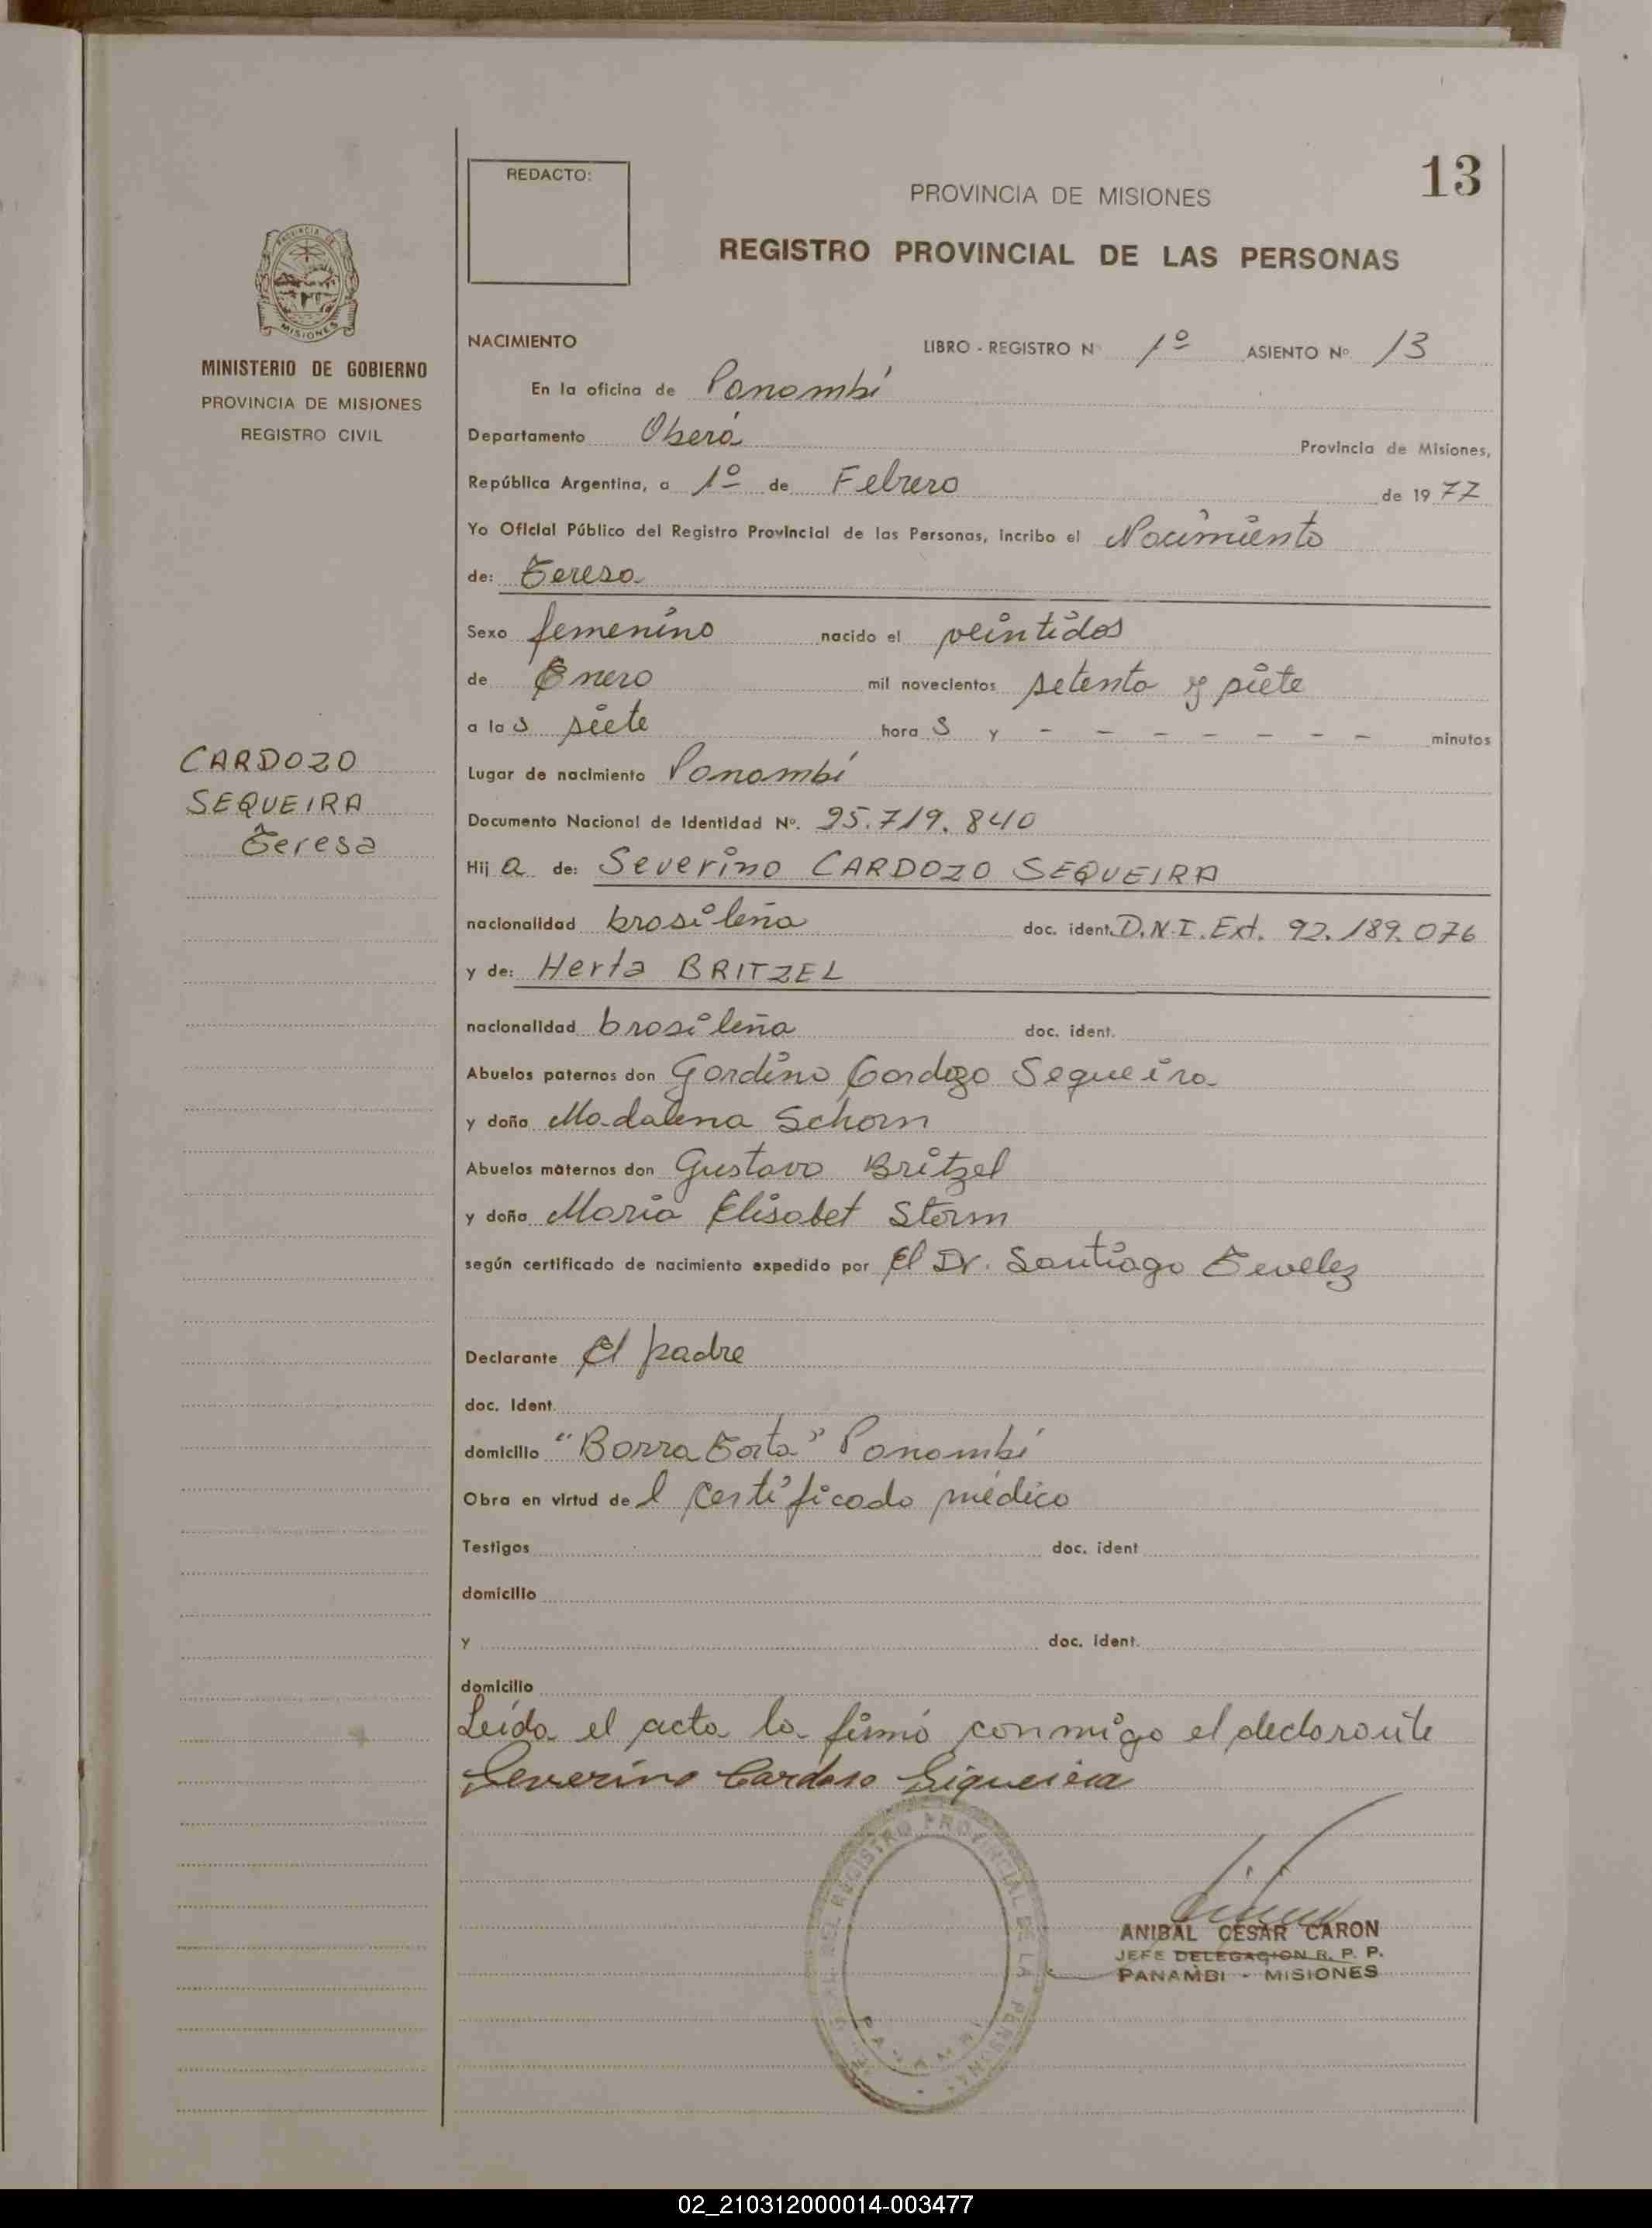 13
REDACTO:
PROVINCIA DE MISIONES
REGISTRO PROVINCIAL DE LAS PERSONAS
PROVINCIA DE
MISIONES
MINISTERIO DE GOBIERNO
PROVINCIA DE MISIONES
REGISTRO CIVIL
NACIMIENTO LIBRO - REGISTRO Nº 1º ASIENTO Nº 13
En la oficina de Panambí
Departamento Oberá Provincia de Misiones,
República Argentina, a 1º de Febrero de 1977
Yo Oficial Público del Registro Provincial de las Personas, incribo el Nacimiento
de: Teresa
Sexo femenino nacido el veintidos
de Enero mil novecientos setenta y siete
a las siete horas y - - - - - - - minutos
Lugar de nacimiento Panambí
Documento Nacional de Identidad Nº. 25.719.840
CARDOZO
SEQUEIRA
Teresa
Hija de: Severino CARDOZO SEQUEIRA
nacionalidad brasileña doc. ident. D.N.I. Ext. 92.189.076
y de: Herta BRITZEL
nacionalidad brasileña doc. ident.
Abuelos paternos don Gardino Cardozo Sequeira
y doña Madalena Schorn
Abuelos maternos don Gustavo Britzel
y doña Maria Elisabet Storm
según certificado de nacimiento expedido por El Dr. Santiago Tevelez
Declarante El padre
doc. Ident.
domicilio "Barra Torta" Panambí
Obra en virtud del certificado médico
Testigos doc. ident
domicilio
y doc. ident.
domicilio
Leída el acta la firmó conmigo el declarante
Severino Cardoso Siqueira
DEL REGISTRO PROVINCIAL DE LAS PERSONAS
PANAMBI
ANIBAL CESAR CARON
JEFE DELEGACION R. P. P.
PANAMBI - MISIONES
02_210312000014-003477